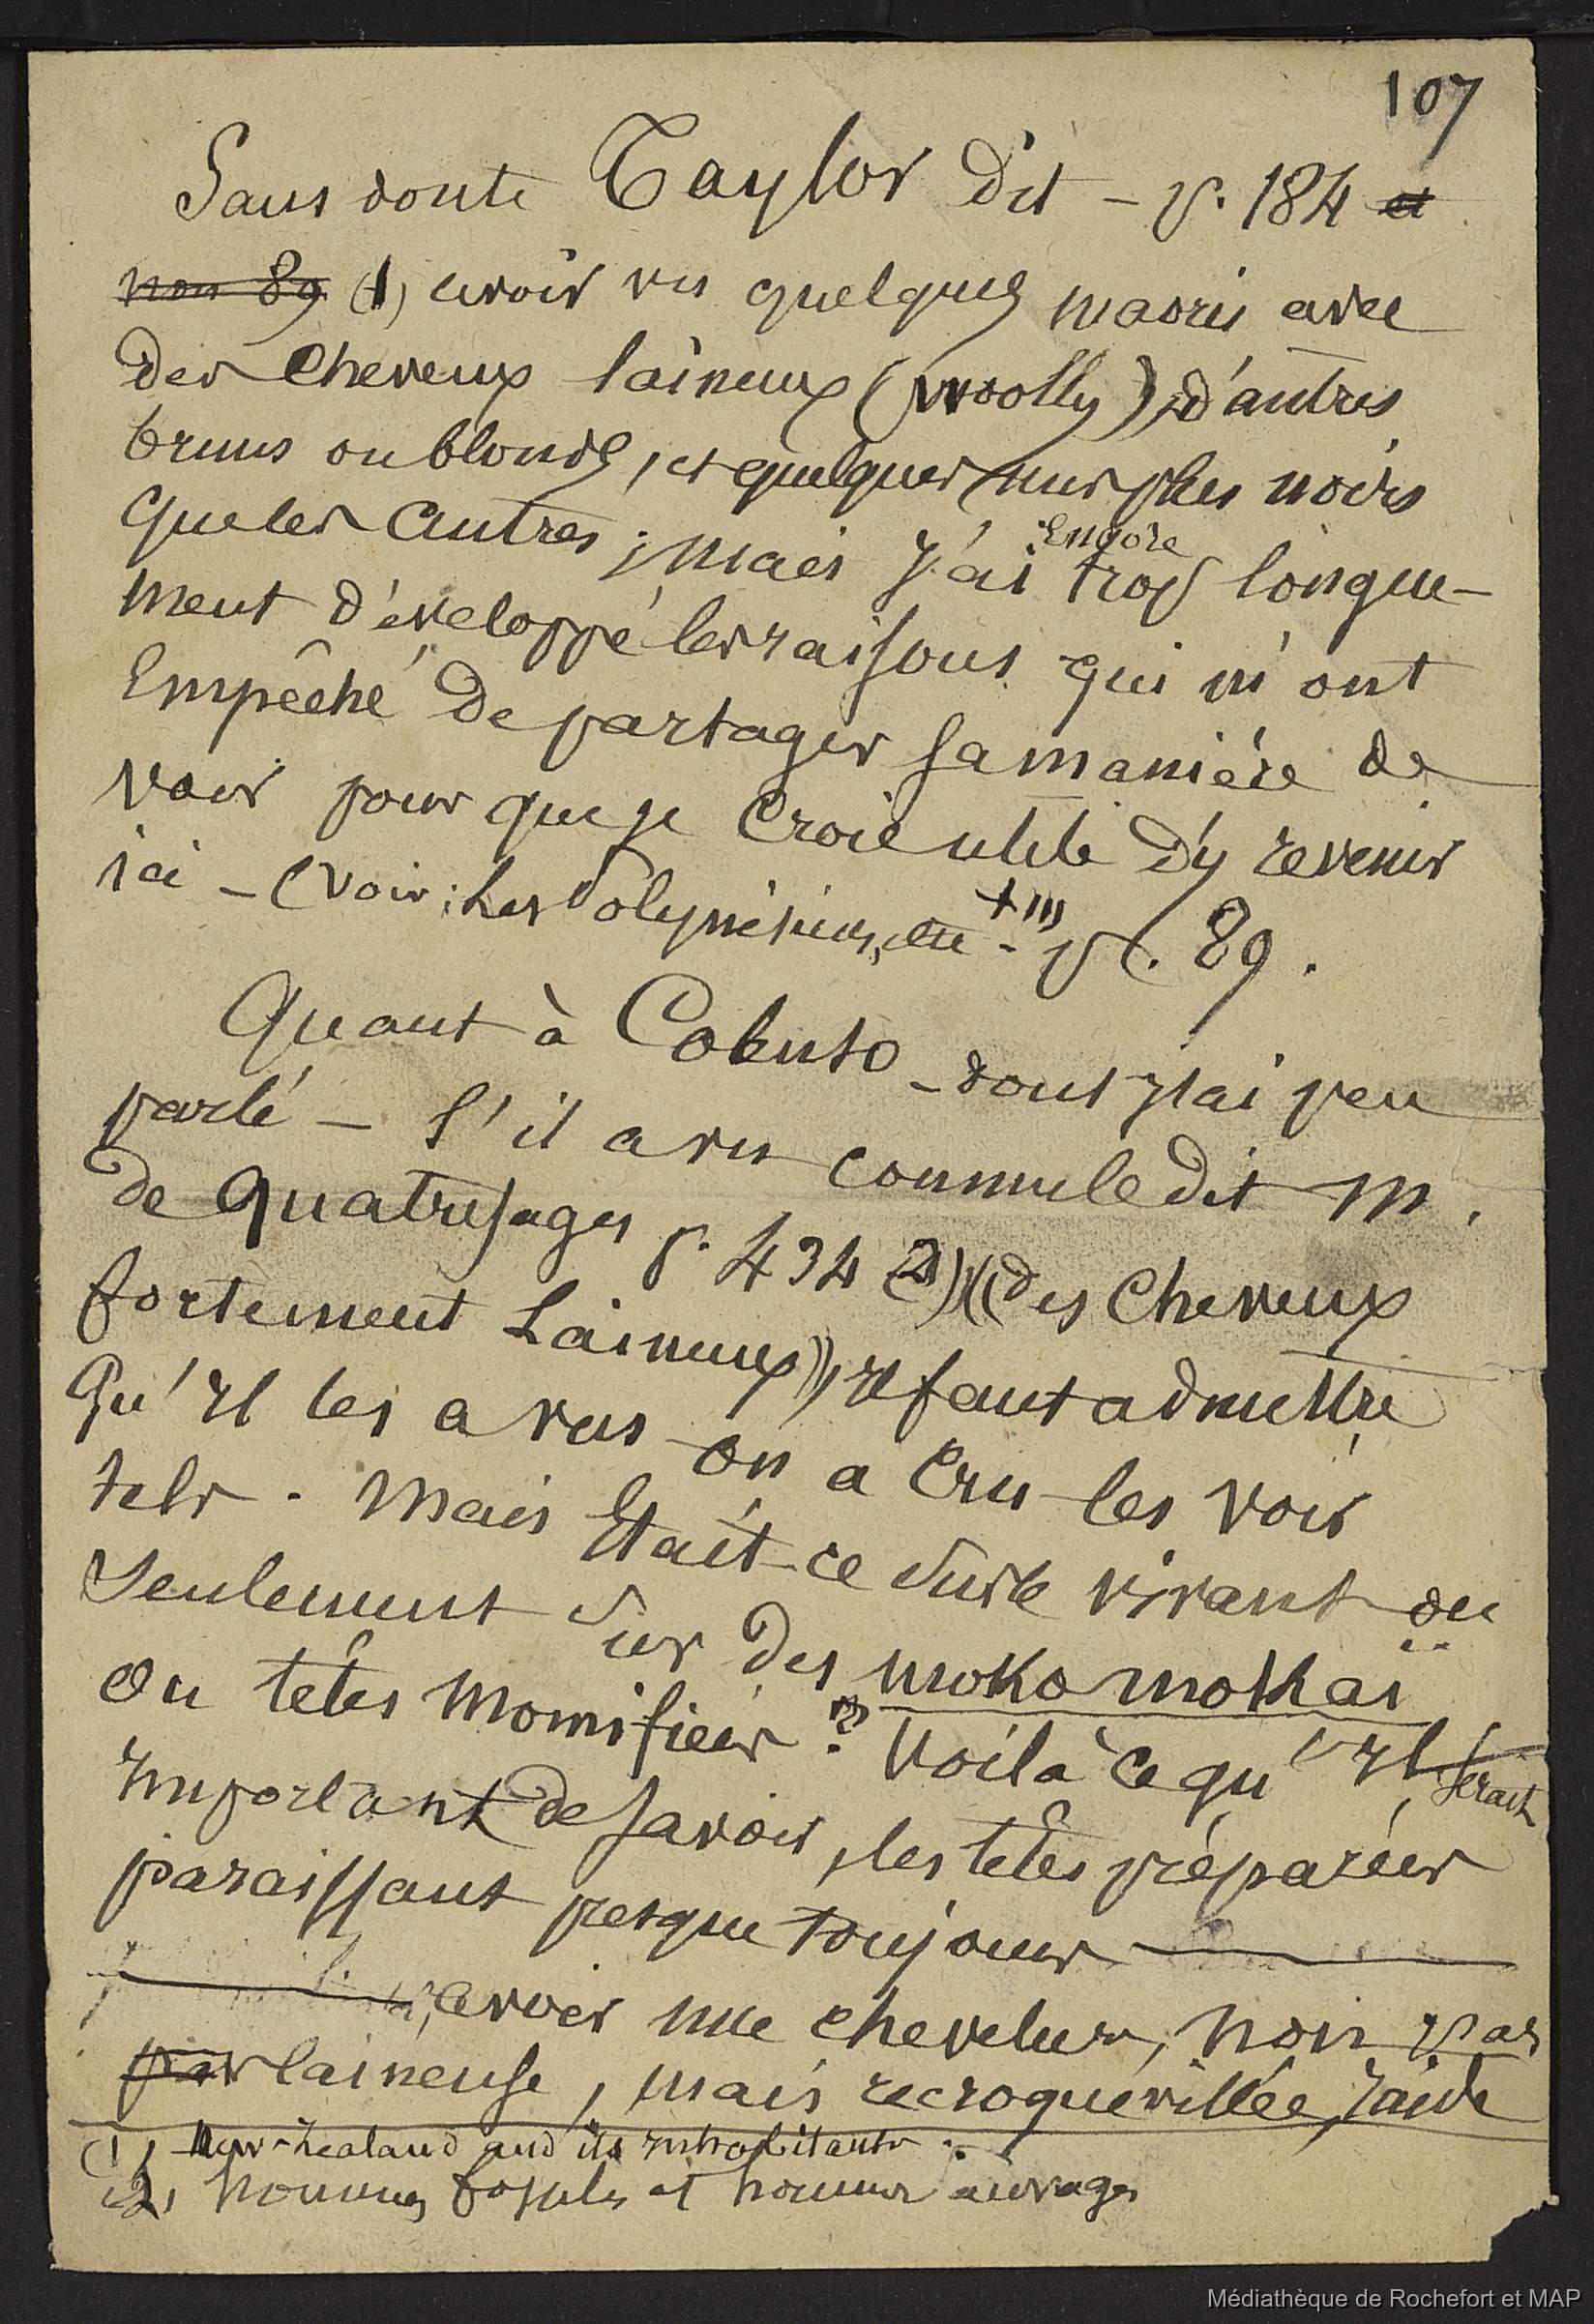 107
Sans doute Taylor dit - p. 184 et
non 89 (1) avoir vu quelques maoris avec
des cheveux laineux (woolly), d'autres
bruns ou blonds, et quelques uns plus noirs
que les autres ; mais j'ai encore trop longue-
ment développé les raisons qui m'ont
empêché de partager sa manière de
voir pour que je croie utile d'y revenir
ici - (voir : Les Polynésiens, etc - t III p. 89.
Quant à Colenso - dont j'ai peu
parlé - s'il a vu comme le dit M.
de Quatrefages p. 434 (2) « des cheveux
fortement laineux », il faut admettre
qu'il les a vus ou a cru les voir
tels. Mais était-ce sur le vivant ou
seulement sur des moko mokaï
ou têtes momifiées ? Voilà ce qu'il serait
important de savoir, les têtes préparées
paraissant presque toujours
avoir une chevelure, non pas
par laineuse, mais recroquevillée, raide
(1) New-Zealand and its inhabitants.
(2) hommes fossiles et hommes sauvages
Médiathèque de Rochefort et MAP